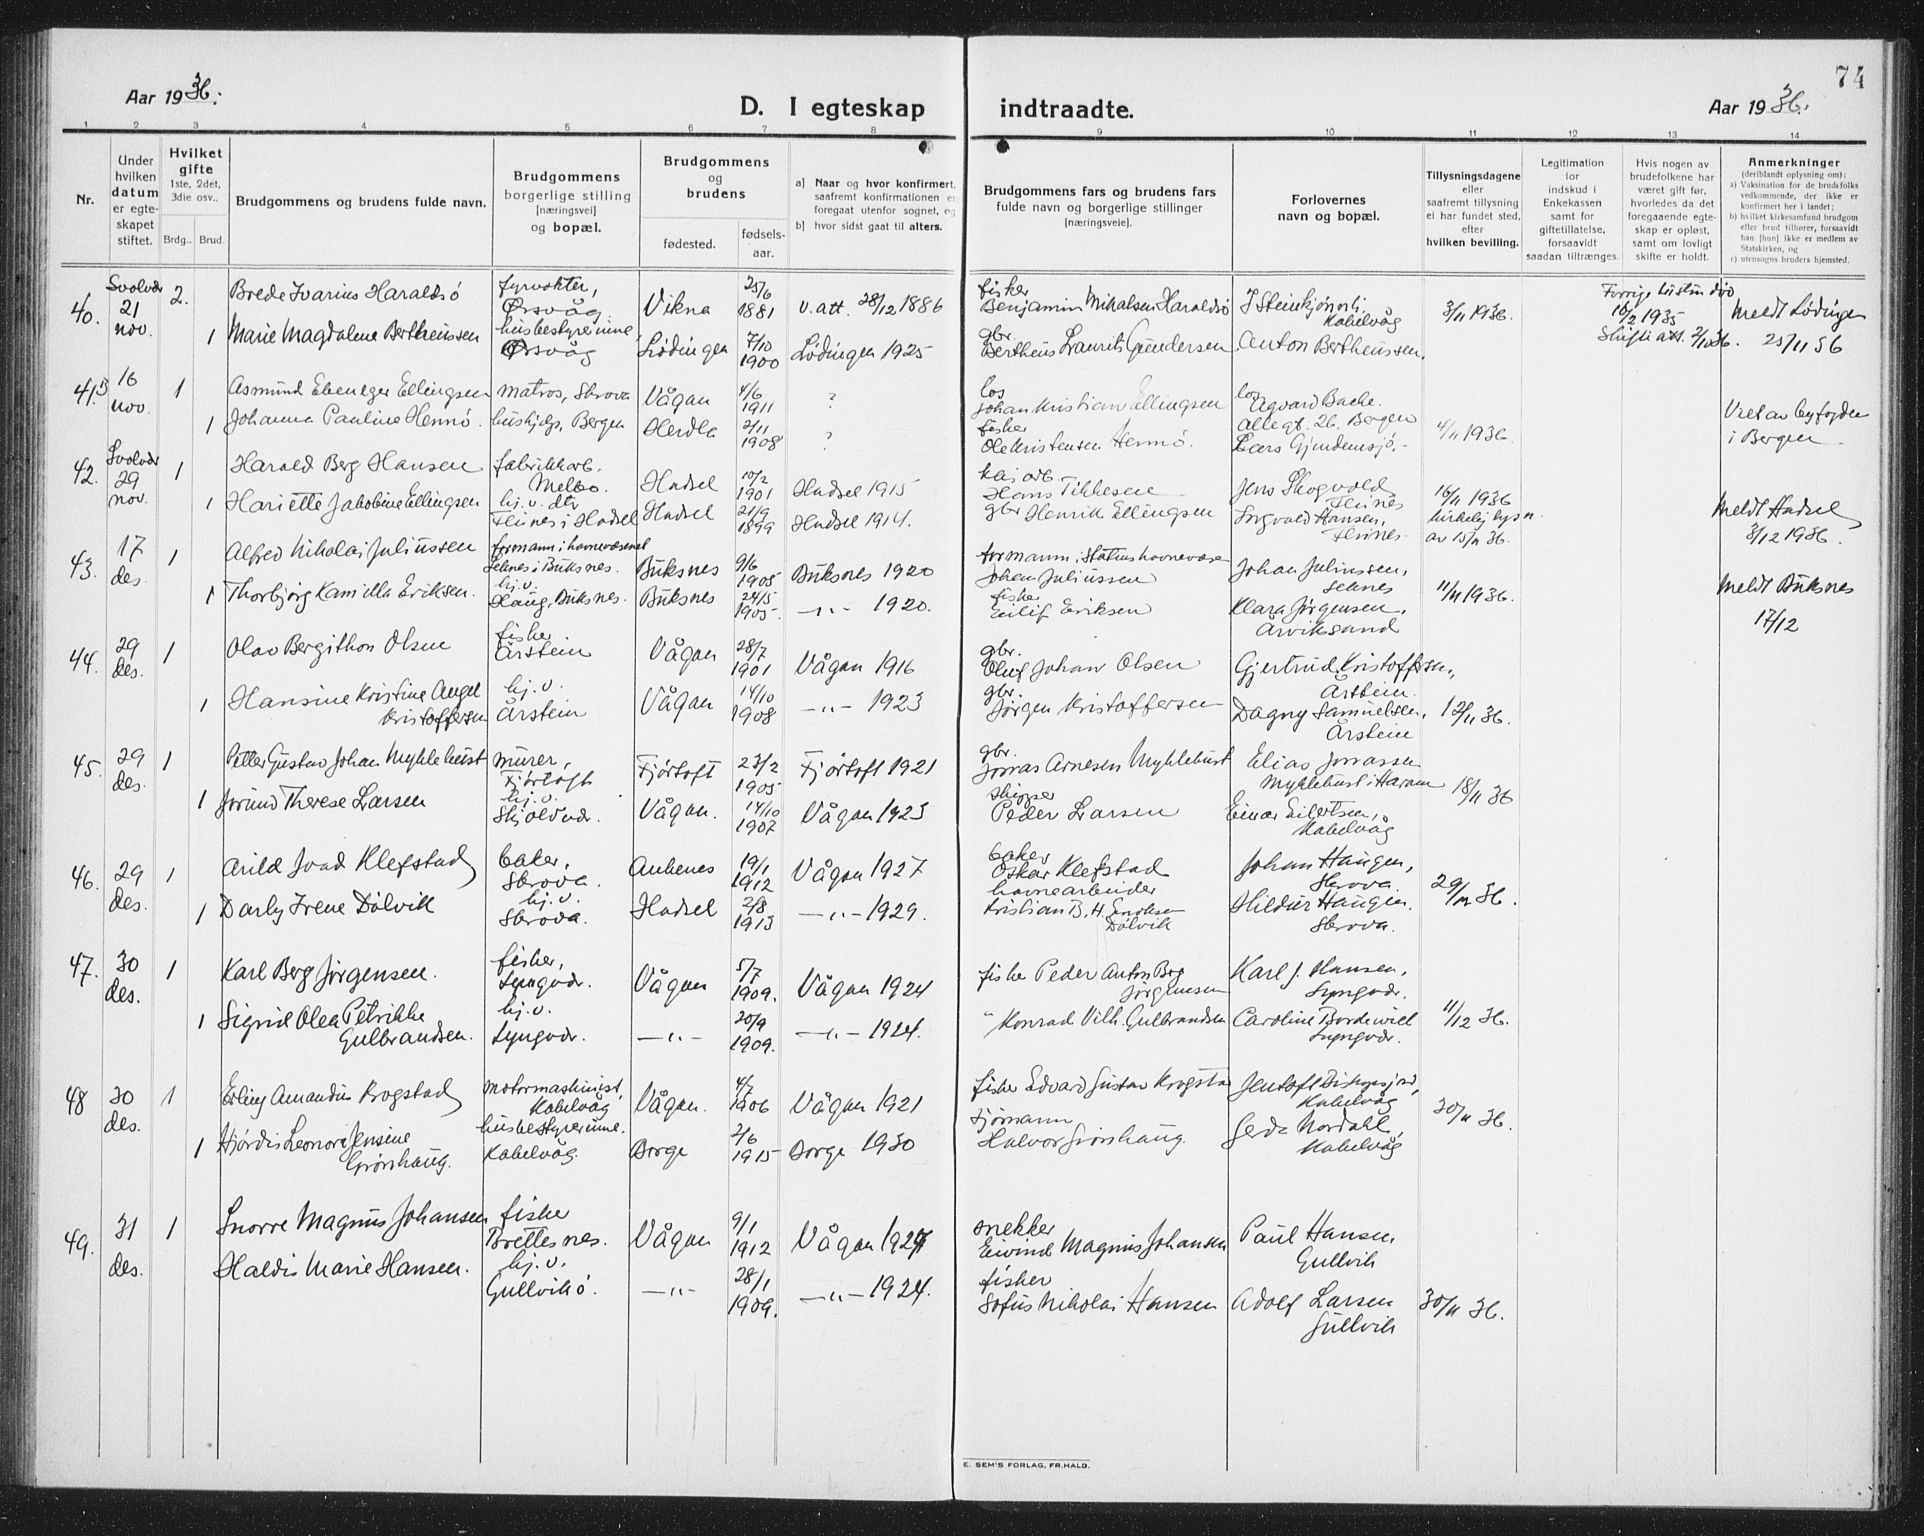 74
Aar 1936.
D. I egteskap indtraadte.
Aar 1936.
1 2 3 4 5 6 7 8 9 10 11 12 13 14
Nr.
Under hvilken datum er egteskapet stiftet.
Hvilket gifte 1ste, 2det, 3die osv..
Brdg.. Brud.
Brudgommens og brudens fulde navn.
Brudgommens borgerlige stilling [næringsvei] og bopæl.
Brudgommens og brudens
fødested.
fødselsaar.
a) Naar og hvor konfirmert, saafremt konfirmationen er foregaat utenfor sognet, og
b) hvor sidst gaat til alters.
Brudgommens fars og brudens fars fulde navn og borgerlige stillinger [næringsveie].
Forlovernes navn og bopæl.
Tillysningsdagene eller saafremt tillysning ei har fundet sted, efter hvilken bevilling.
Legitimation for indskud i Enkekassen samt for giftetillatelse, forsaavidt saadan tiltrænges.
Hvis nogen av brudefolkene har været gift før, hvorledes da det foregaaende egteskap er opløst, samt om lovligt skifte er holdt.
Anmerkninger (deriblandt oplysning om):
a) Vaksination for de brudsfolks vedkommende, der ikke er konfirmert her i landet;
b) hvilket kirkesamfund brudgom eller brud tilhører, forsaavidt han [hun] ikke er medlem av Statskirken, og
c) utensogns bruders hjemsted.
40. Svolvær 21 nov. 2. Brede Ivarius Haraldsö fyrvokter, Ørsvåg Vikna 25/6 1881 v. att. 28/12 1886 fisker Benjamin Mikalsen Haraldsö Kabelvåg 3/11 1936. 16/2 1935 Meldt Lødingen
1 Marie Magdalene Bertheussen husbestyrerinne, Ørsvåg Lödingen 7/10 1900 Lödingen 1925 gbr. Bertheus Laurits Gundersen Anton Bertheussen, 25/11 36
41. 16 nov. 1 Asmund Ebenezer Ellingsen matros, Skrova Vågan 4/6 1911 ? los Johan Kristian Ellingsen los Agvard Bache.
1 Johanna Pauline Hennö. hushjelp, Bergen Herdla 2/11 1908 ? fisker Ole Kristensen Hennö. Allegt. 26, Bergen Lars Gjendemsjö. 4/11 1936. Viet av byfogden i Bergen
42. Svolvær 29 nov. 1 Harald Berg Hansen fabrikkarb. Melbo. Hadsel 10/2 1901 Hadsel 1915 kaiarb. Hans Tikkesen Jens Skogvold Flenes 16/11 1936
1 Hariette Jakobine Ellingsen hj. v. dtr Flenes i Hadsel Hadsel 21/9 1899 Hadsel 1914. gbr Henrik Ellingsen Hansen, Flenes. kirkelig lysn. av 15/11 36. Meldt Hadsel 3/12 1936.
43. 17 des. 1 Alfred Nikolai Juliussen formann i havnevæsenet Seknes i Buksnes. Buksnes 9/6 1905 Buksnes 1920 formann i Statens havnevæsen Johan Juliussen Johan Juliussen, Seknes
1 Thorbjörg Kamilla Eriksen. hj. v. Haug, Buksnes. Buksnes 24/5 1905. —"— 1920. fisker Eilif Eriksen Klara Jørgensen, Årviksand 11/11 1936. Meldt Buksnes 17/12
44. 29 des. 1 Olav Bergithon Olsen fisker Årstein Vågan 28/7 1901 Vågan 1916 gbr. Oluf Johan Olsen Gjertrud Kristoffersen, Årstein.
1 Hansine Kristine Angel Kristoffersen hj. v. Årstein Vågan 14/10 1908 —"— 1923 gbr. Jørgen Kristoffersen Dagny Samuelsen, Årstein 12/11 36.
45. 29 des. 1 Petter Gustav Johan Myklebust murer, Fjörtoft Fjörtoft 23/2 1905 Fjörtoft 1921 gbr. Jonas Arnesen Myklebust Elias Jonassen Myklebust i Haram 18/11 36
1 Jorund Therese Larsen hj. v. Skjoldvær. Vågan. 14/10 1907 Vågan 1923 skipper Peder Larsen Einar Eilertsen, Kabelvåg
46. 29 des. 1 Arild Joad Klefstad baker, Skrova. Ankenes 19/1 1912 Vågan 1927 baker Oskar Klefstad Johan Haugen, Skrova. 29/11 36.
1 Darly Irene Dölvik hj. v. Skrova. Hadsel 2/8 1913 —"— 1929. havnearbeider Kristian B. H. Enoksen Dölvik Hildur Haugen. Skrova.
47. 30 des. 1 Karl Berg Jörgensen. fisker, Lyngvær. Vågan 5/7 1909. Vågan 1924 fisker Peder Anton Berg Jörgensen Karl J. Hansen, Lyngvær.
1 Sigrid Olea Petrikke Gulbrandsen. hj. v. Lyngvær. —"— 20/9 1909. —"— 1924. " Konrad Vilh. Gulbrandsen Caroline Bordewick Lyngvær. 11/12 36.
48 30 des. 1 Erling Amandus Krogstad motormaskinist, Kabelvåg Vågan. 4/7 1906 Vågan 1921 fisker Edvard Gustav Krogstad Jentoft Kabelvåg 30/11 36.
1 Hjördis Leonore Jensine Grönhaug. husbestyrerinne. Kabelvåg. Borge 2/6 1915 Borge 1930 Halvor Grönhaug. Gerda Nordahl, Kabelvåg
49. 31 des. 1 Snorre Magnus Johansen fisker Brettesnes. Vågan 9/1 1912 Vågan 1927 snekker Eivind Magnus Johansen Paul Hansen, Gullvik
Haldis Marie Hansen. hj. v. Gullvik ö. —"— 28/1 1909. —"— 1924. fisker Sofus Nikolai Hansen Adolf Larsen Gullvik 30/11 36.
E. SEM'S FORLAG, FR.HALD.